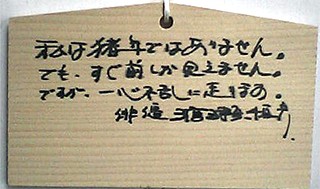 私は猪年ではありません。
でも、すぐ前しか見えません。
ですが、一心不乱に走るの。
俳優